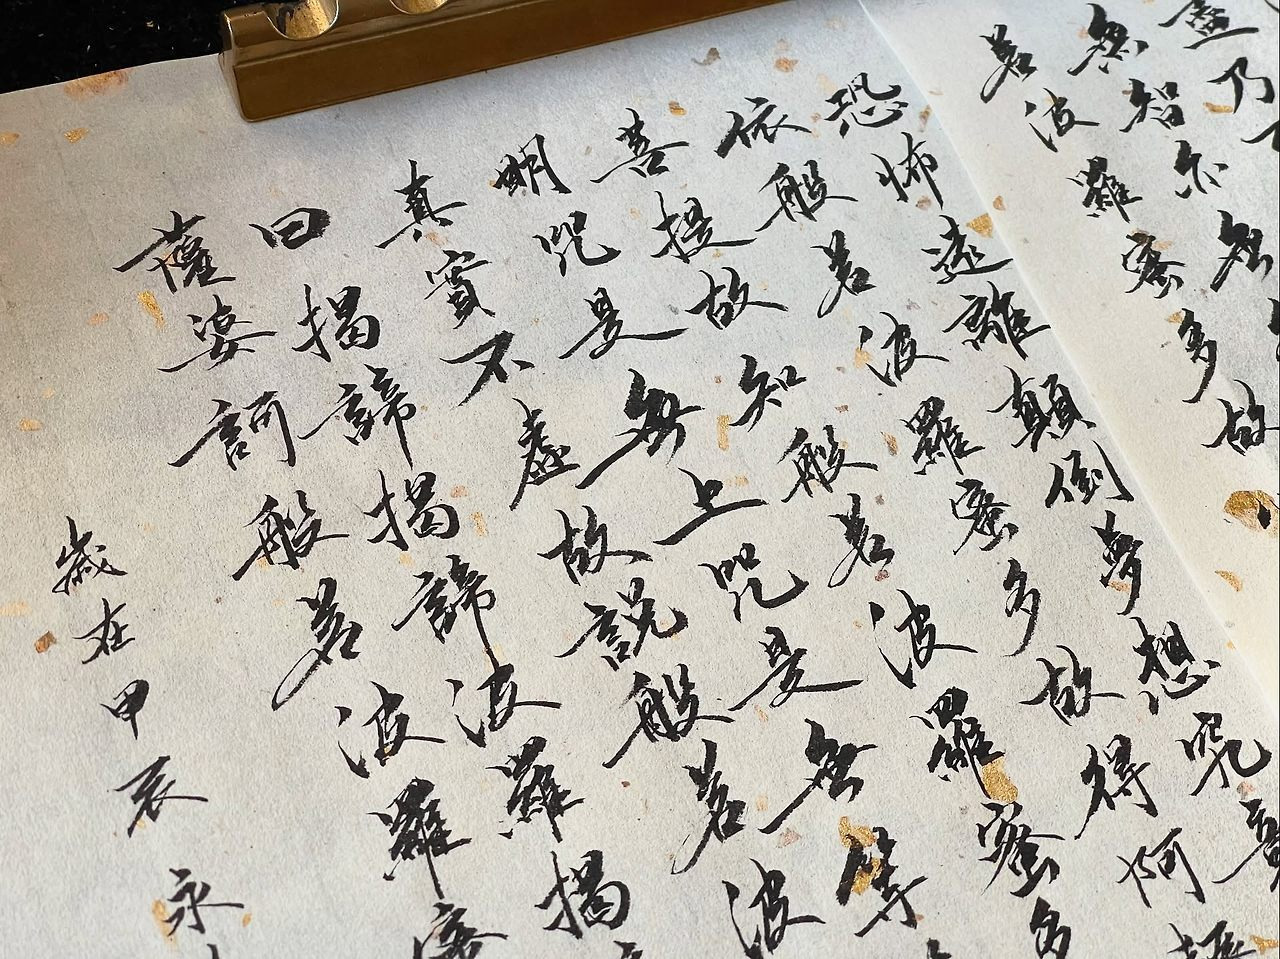 盡乃
無智亦無
若波羅蜜多故
恐怖遠離顛倒夢想究竟
依般若波羅蜜多故得阿耨
菩提故知般若波羅蜜多
明咒是無上咒是無等
真實不虛故說般若波
曰揭諦揭諦波羅揭
薩婆訶般若波羅蜜
歲在甲辰永